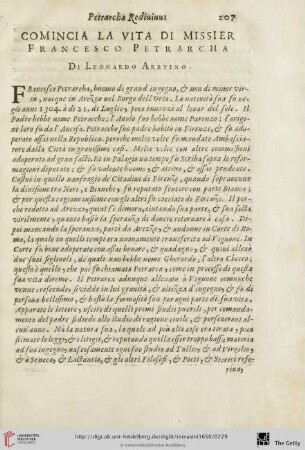 Petrarcha Rediuiuus 207
COMINCIA LA VITA DI MISSIER
FRANCESCO PETRARCHA
DI LEONARDO ARETINO.
Francesco Petrarcha, huomo di grand'ingegno, & non di minor vir-
tù, nacque in Arezzo nel Borgo dell'Orto. La natiuità sua fu ne
gli anni 1304. à dì 21. di Luglio, poco innanzi al leuar del sole. Il
Padre hebbe nome Petracco; l'Auolo suo hebbe nome Parenzo; l'origi-
ne loro fu da l'Ancisa. Petracco suo padre habitò in Firenze, & fu ado-
perato assai nella Republica. peroche molte volte fu mandato Ambascia-
tore dalla Città in grauissimi casi. Molte volte con altre commissioni
adoperato à gran fatti. Et in Palagio vn tempo fu Scriba sopra le refor-
magioni diputato; & fu valente huomo, & attiuo, & assai prudente.
Costui in quello naufragio de Cittadini di Fiorenza, quando soprauenne
la diuisione tra Neri, e Bianchi, fu reputato sentire con parte Bianca;
& per questa cagione insieme con gli altri fu cacciato di Fiorenza. Il per-
che redotto ad Arezzo, quiui fe dimora, aiutando sua parte, & sua setta
virilmente, quanto bastò la speranza di douere ritornare à casa. Di-
poi mancando la speranza, partì da Arezzo, & andonne in Corte di Ro-
ma, la quale in quelli tempi era nuouamente transferita ad Vignone. In
Corte fu bene adoperato con assai honore, & guadagno, & quiui alleuò
due suoi figliuoli, de' quali vno hebbe nome Gherardo, l'altro Checco;
questo è quello, che poi fu chiamato Petrarca, come in processo di questa
sua vita diremo. Il Petrarca adunque alleuato à Vignone come
venne crescendo, si vidde in lui grauità, & altezza d'ingegno, & fu di
persona bellissimo, & bastò la formosità sua per ogni parte di sua vita.
Apparate le lettere, vscito di quelli primi studij puerili, per comanda-
mento del padre si diede allo studio di ragione ciuile, & perseuerouui al-
cun'anno. Mà la natura sua, la quale ad più alte cose era tirata, poco
stimate le leggi, & i litigij, & reputando quella esser troppo bassa materia
ad suo ingegno, nascosamente ogni suo studio ad Tullio, & ad Virgilio,
& à Seneca, & Lactantio, & gli altri Filosofi, & Poeti, & Storici refe-
riua,
UNIVERSITÄTS-
BIBLIOTHEK
HEIDELBERG
http://digi.ub.uni-heidelberg.de/diglit/tomasini1650/0229
© Universitätsbibliothek Heidelberg
The Getty